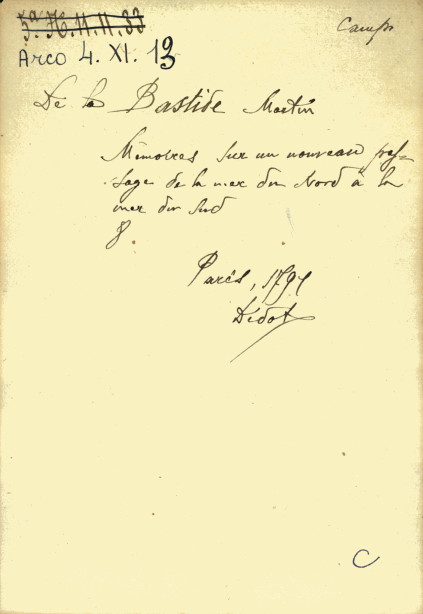 5ª H. 11. 11. 33
Campr
Arco 4. XI. 13
De la Bastide Martin
Mémoires sur un nouveau pas=
sage de la mer du Nord à la
mer du Sud
8.
Paris, 1791
Didot
C